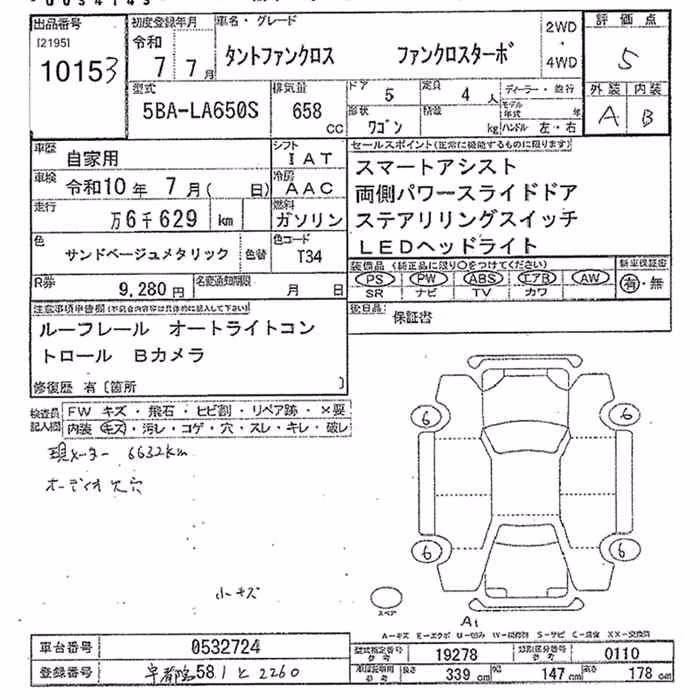 出品番号
[2195]
10153
初度登録年月
令和
7 7月
車名・グレード
タントファンクロス ファンクロスターボ
2WD
・
4WD
評価点
5
型式
5BA-LA650S
排気量
658
CC
ドア
5
定員
4人
形状
ワゴン
積載
kg
ディーラー・並行
モデル年式 年
ハンドル 左・右
外装 内装
A B
車歴
自家用
シフト
IAT
車検
令和10年 7月( 日)
冷房
AAC
走行
万6千629 km
燃料
ガソリン
色
サンドベージュメタリック
色替
色コード
T34
R券
9,280円
名変通知期限
月 日
セールスポイント(正常に機能するものに限ります)
スマートアシスト
両側パワースライドドア
ステアリリングスイッチ
LEDヘッドライト
装備品 (純正品に限り○をつけてください)
PS PW ABS エアB AW
SR ナビ TV カワ
新車保証書
有・無
後日品
保証書
注意事項申告欄
ルーフレール オートライトコン
トロール Bカメラ
修復歴 有〔箇所 〕
検査員記入欄
FW キズ・飛石・ヒビ割・リペア跡・×要
内装 キズ・汚レ・コゲ・穴・スレ・キレ・破レ
現メーター 6632km
オーディオ欠穴
小キズ
6
6
6
6
スペア
A1
A-キズ E-エクボ U-凹み W-補修跡 S-サビ C-腐食 XX-交換済
車台番号
0532724
登録番号
宇都宮581と2260
型式指定番号
参考
19278
類別区分番号
参考
0110
参考
長さ 339 cm 幅 147 cm 高さ 178 cm